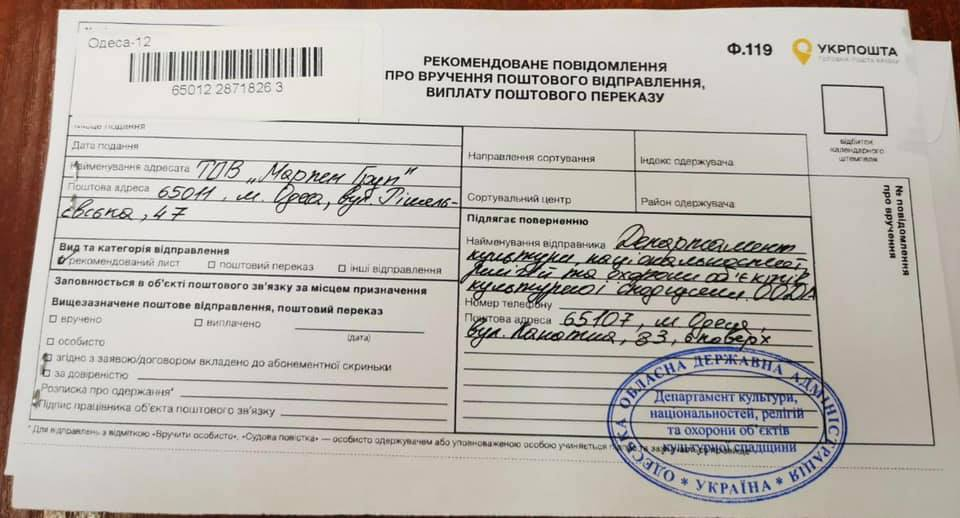 Одеса-12
65012 2871826 3
РЕКОМЕНДОВАНЕ ПОВІДОМЛЕННЯ
ПРО ВРУЧЕННЯ ПОШТОВОГО ВІДПРАВЛЕННЯ,
ВИПЛАТУ ПОШТОВОГО ПЕРЕКАЗУ
Ф.119
УКРПОШТА
відбиток
календарного
штемпеля
№ повідомлення
про вручення
Місце подання
Дата подання
Найменування адресата ТДВ „Марпен Груп"
Поштова адреса 65011, м. Одеса, вул. Рішель-
євська, 47
Вид та категорія відправлення
рекомендований лист поштовий переказ інші відправлення
Заповнюється в об'єкті поштового зв'язку за місцем призначення
Вищезазначене поштове відправлення, поштовий переказ
вручено виплачено
(дата)
особисто
згідно з заявою/договором вкладено до абонементної скриньки
за довіреністю
Розписка про одержання*
Підпис працівника об'єкта поштового зв'язку
Направлення сортування
Індекс одержувача
Сортувальний центр
Район одержувача
Підлягає поверненню
Найменування відправника Департамент
культури, національностей,
релігій та охорони об'єктів
культурної спадщини ООДА
Номер телефону
Поштова адреса 65107, м. Одеса,
вул. Канатна, 83, 6 поверх
* Для відправлень з відміткою «Вручити особисто», «Судова повістка» — особисто одержувачем або уповноваженою особою учиняється
ОДЕСЬКА ОБЛАСНА ДЕРЖАВНА АДМІНІСТРАЦІЯ
Департамент культури,
національностей, релігій
та охорони об'єктів
культурної спадщини
* УКРАЇНА *